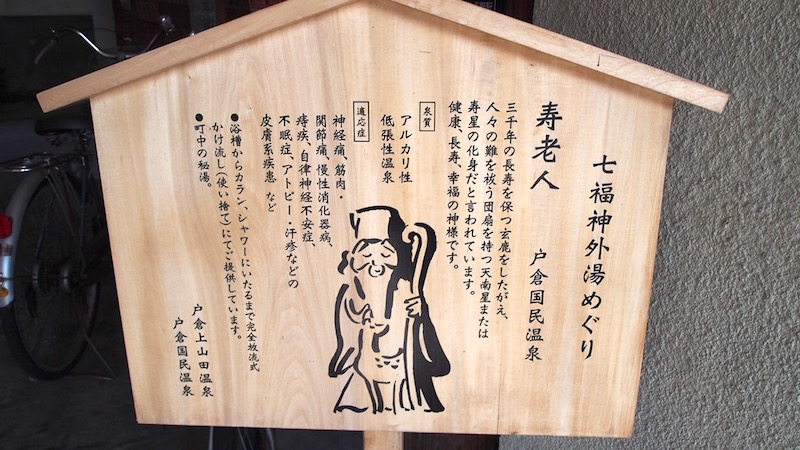 七福神外湯めぐり
寿老人 戸倉国民温泉
三千年の長寿を保つ玄鹿をしたがえ、
人々の難を祓う団扇を持つ天南星または
寿星の化身だと言われています。
健康、長寿、幸福の神様です。
泉質
アルカリ性
低張性温泉
適応症
神経痛、筋肉・
関節痛、慢性消化器病、
痔疾、自律神経不安症、
不眠症、アトピー・汗疹などの
皮膚系疾患 など
●浴槽からカラン、シャワーにいたるまで完全放流式
かけ流し(使い捨て)にてご提供しています。
●町中の秘湯。
戸倉上山田温泉
戸倉国民温泉